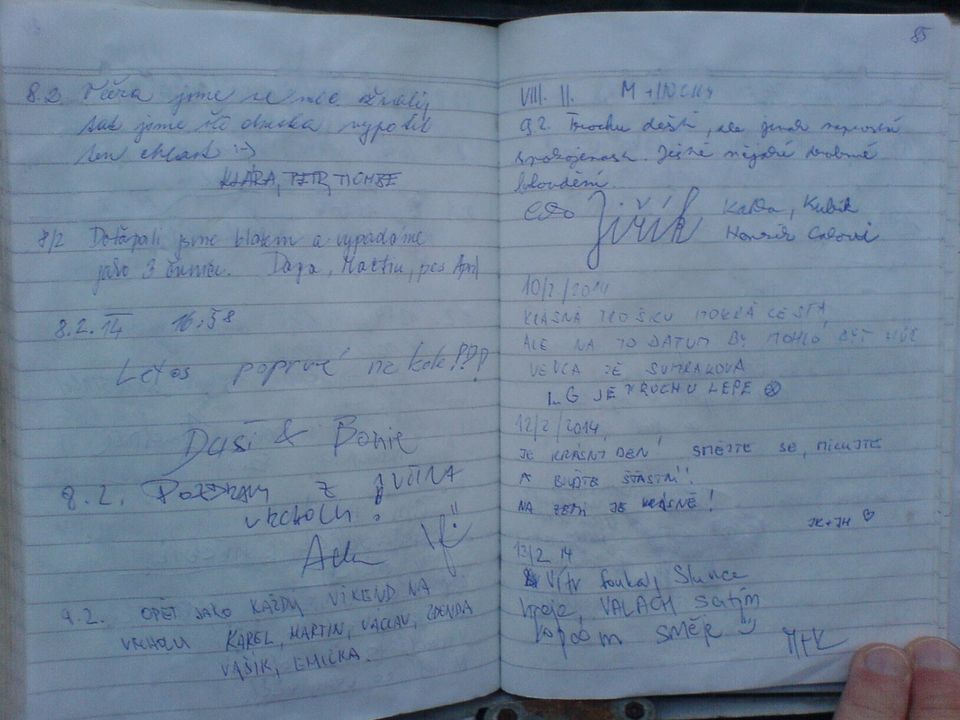 8.2. Včera jsme se moc ožrali,
tak jsme šli dneska vypotit
ten chlast :-)
KLÁRA, PETR, TICHSE
8/2 Došlapali jsme blatem a vypadáme
jako 3 čuníci. Dája, Martin, pes
8.2.14 16:58
Letos poprvé na kole!!!
Daší & Bonie
8.2. POZDRAVY Z
VRCHOLU!
9.2. OPĚT JAKO KAŽDÝ VÍKEND NA
VRCHOLU KAREL, MARTIN, VÁCLAV, ZDENDA
VAŠÍK, EMIČKA.
85
VIII. II.
9.2. Trochu deště, ale jinak naprostá
spokojenost. Ještě nějaké drobné
bloudění.
Jiřík Kačka, Kubík
10/2/2014
KRÁSNÁ TROŠKU MOKRÁ CESTA
ALE NA TO DATUM BY MOHLO BÝT HŮŘ
JE TROCHU LÉPE
12/2/2014
JE KRÁSNÝ DEN! SMĚJTE SE, MILUJTE
A BUĎTE ŠŤASTNÍ!!
NA ZEMI JE KRÁSNĚ!
JK+JH ♡
12/2 14
Vítr foukal, Slunce
hřeje, VALACH
SMĚR
M+K